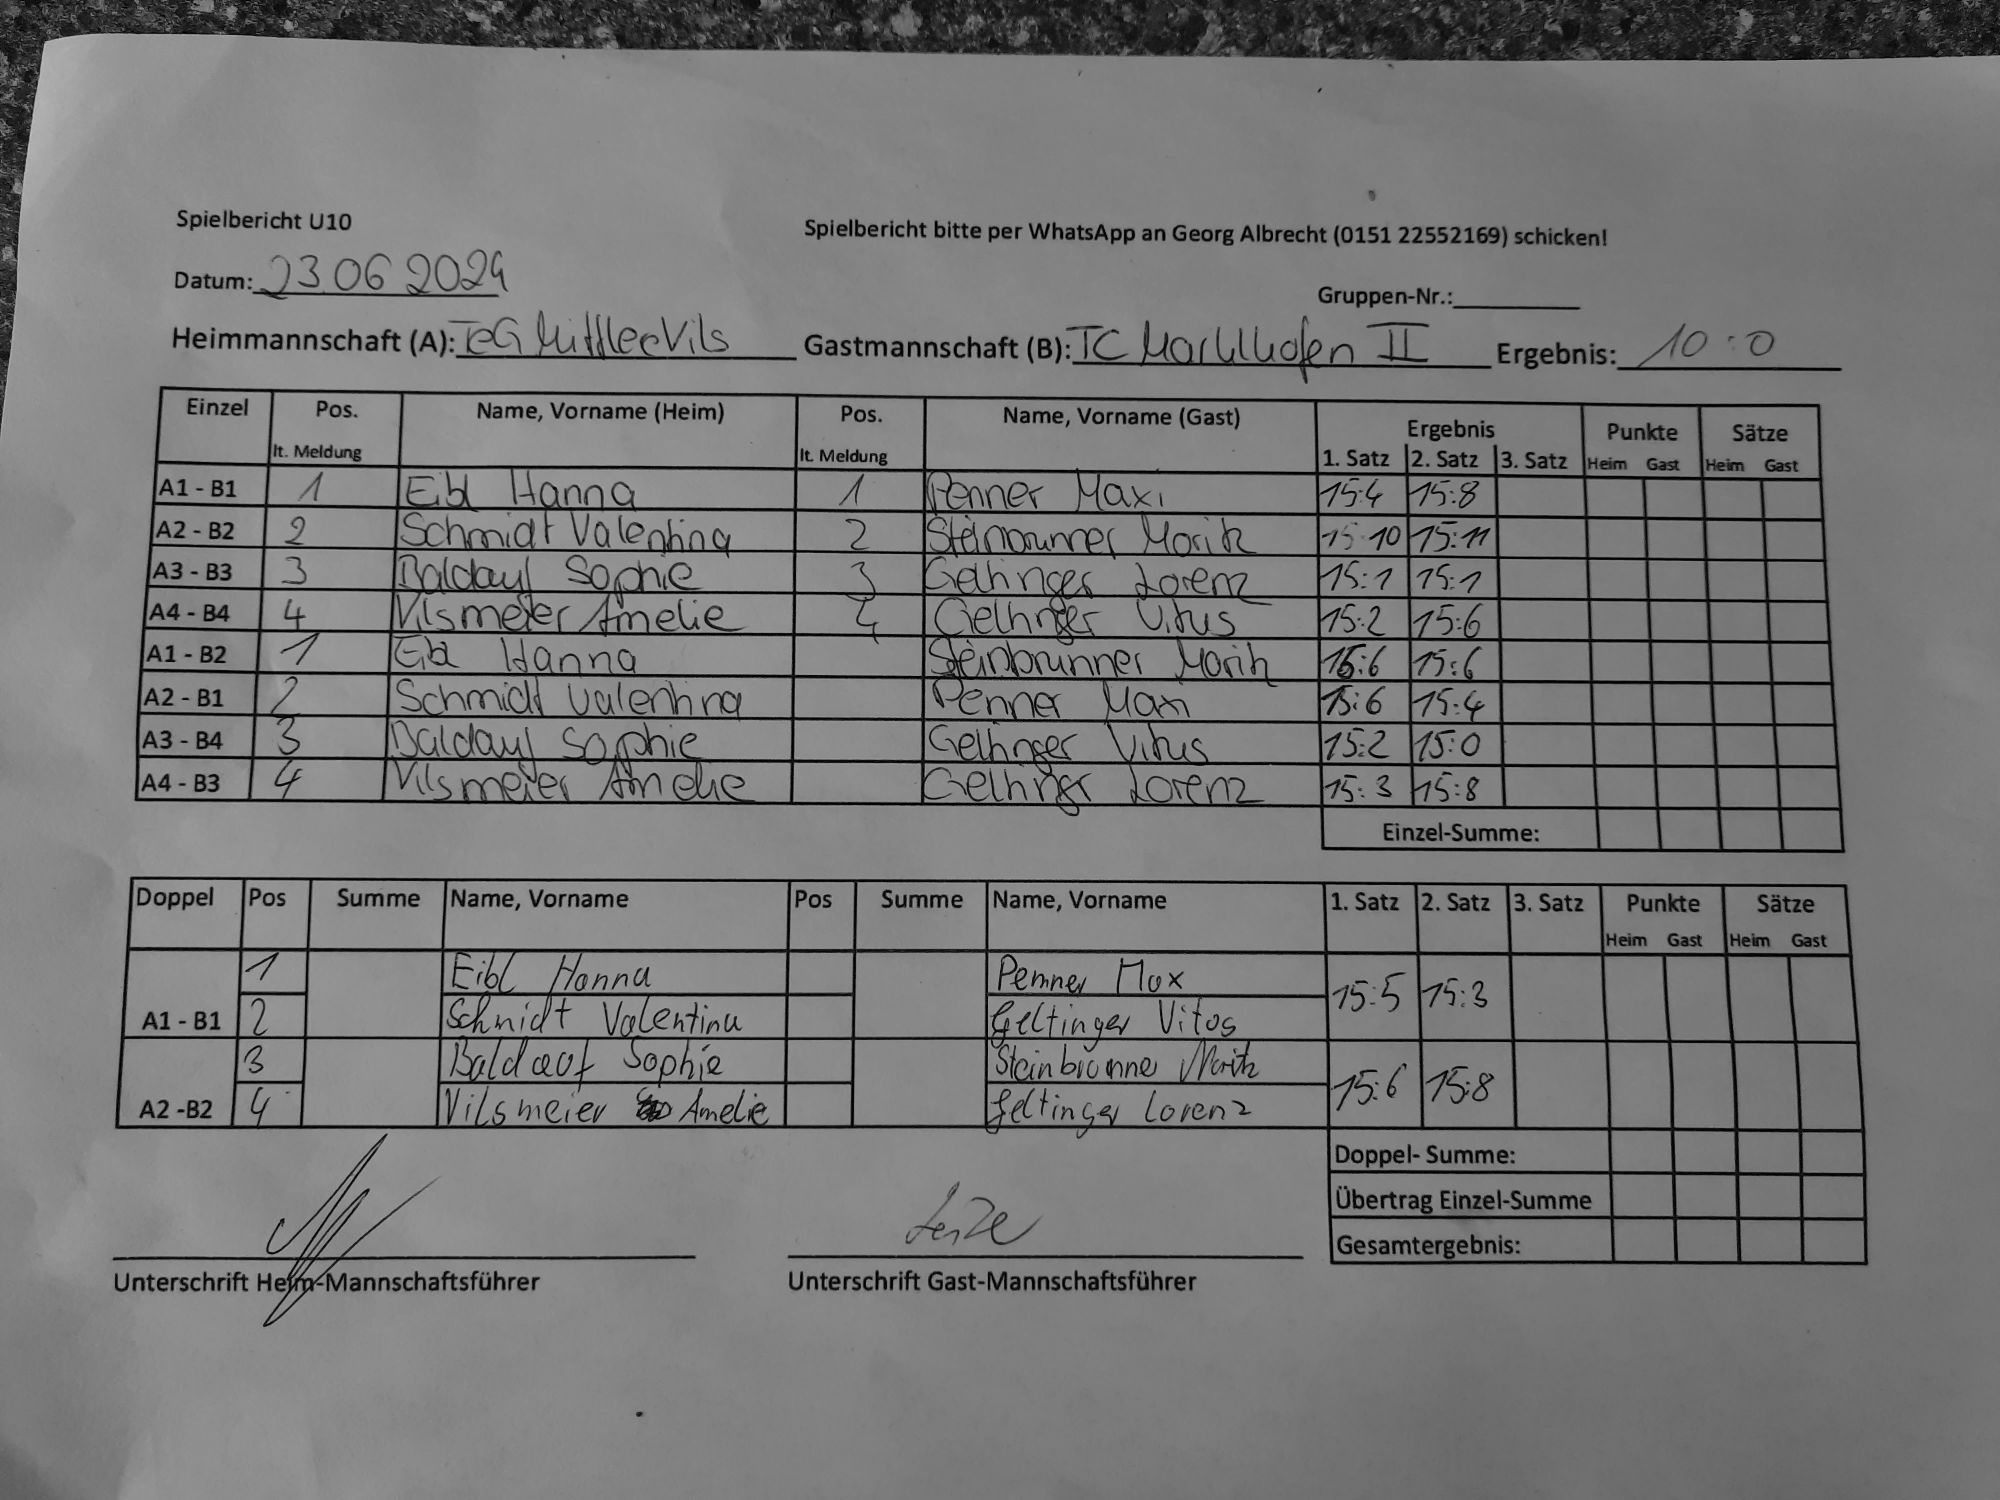 Spielbericht U10
Spielbericht bitte per WhatsApp an Georg Albrecht (0151 22552169) schicken!
Datum: 23.06 2024
Gruppen-Nr.:
Heimmannschaft (A): TeG Mittlere Vils Gastmannschaft (B): TC Marklkofen II Ergebnis: 10:0
Einzel Pos. Name, Vorname (Heim) Pos. Name, Vorname (Gast) Ergebnis Punkte Sätze
lt. Meldung lt. Meldung 1. Satz 2. Satz 3. Satz Heim Gast Heim Gast
A1 - B1 1 Eibl Hanna 1 Penner Maxi 15:4 15:8
A2 - B2 2 Schmidt Valentina 2 Steinbrunner Moritz 15:10 15:11
A3 - B3 3 Baldauf Sophie 3 Geltinger Lorenz 15:1 15:1
A4 - B4 4 Vilsmeier Amelie 4 Geltinger Vitus 15:2 15:6
A1 - B2 1 Eibl Hanna Steinbrunner Moritz 15:6 15:6
A2 - B1 2 Schmidt Valentina Penner Maxi 15:6 15:4
A3 - B4 3 Baldauf Sophie Geltinger Vitus 15:2 15:0
A4 - B3 4 Vilsmeier Amelie Geltinger Lorenz 15:3 15:8
Einzel-Summe:
Doppel Pos Summe Name, Vorname Pos Summe Name, Vorname 1. Satz 2. Satz 3. Satz Punkte Sätze
Heim Gast Heim Gast
1 Eibl Hanna Penner Max 15:5 15:3
A1 - B1 2 Schmidt Valentina Geltinger Vitus
3 Baldauf Sophie Steinbrunner Moritz 15:6 15:8
A2 -B2 4 Vilsmeier Amelie Geltinger Lorenz
Doppel- Summe:
Übertrag Einzel-Summe
Gesamtergebnis:
Unterschrift Heim-Mannschaftsführer Unterschrift Gast-Mannschaftsführer